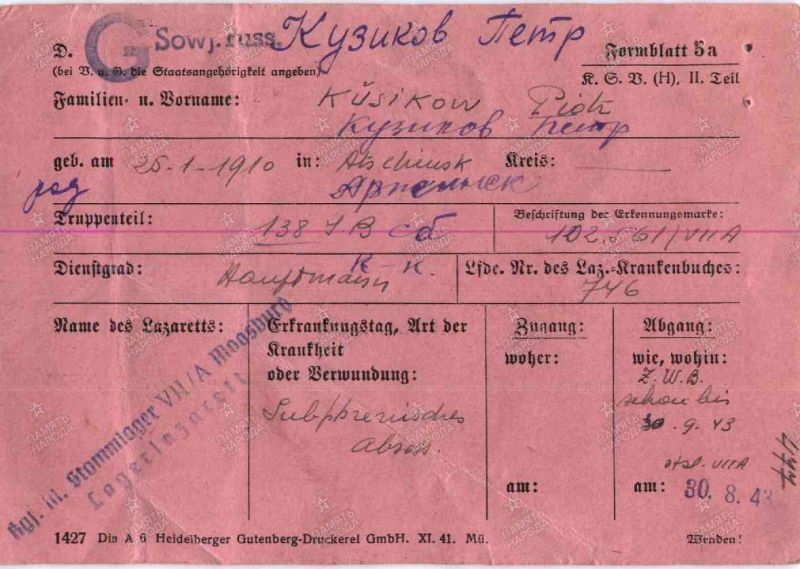 D. G Sowj. russ. Кузиков Петр Formblatt 5a
(bei V. u. G. die Staatsangehörigkeit angeben) K. S. V. (H), II. Teil
Familien- u. Vorname: Küsikow Piotr
Кузиков Петр
geb. am 25-1-1910 in: Atschinsk Kreis:
Truppenteil: 138 J B сб Beschriftung der Erkennungsmarke:
102561/VIIA
к-к.
Dienstgrad: Hauptmann Lfde. Nr. des Laz.-Krankenbuches:
746
Name des Lazaretts: Erkrankungstag, Art der Krankheit oder Verwundung: Zugang: Abgang:
woher: wie, wohin:
Kgf. M. Stammlager VII/A Moosburg
Lagerlazarett
Subphrenisches
Absess.
Z.W.B.
schon bis
30.9.43
VIIA
am: am: 30. 8. 43
477
1427 Din A 6 Heidelberger Gutenberg-Druckerei GmbH. XI. 41. Mü. Wenden!
ПАМЯТЬ НАРОДА